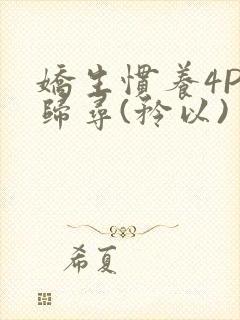 嬌生慣養4P
歸尋(矜以)
希夏